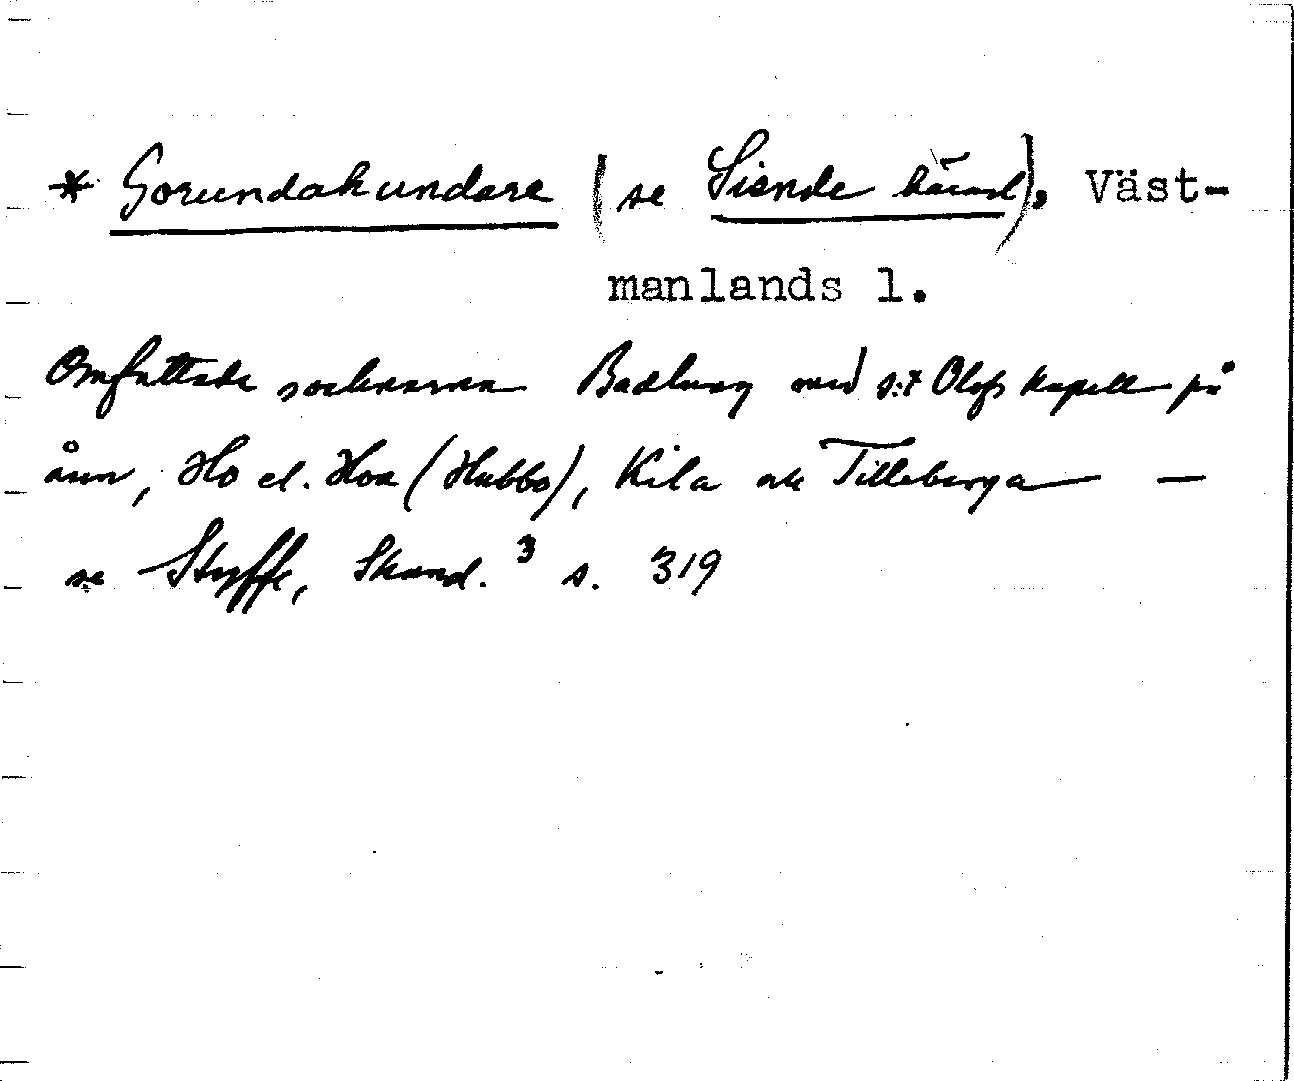 * Gorundahundare (se Siende härad), Väst-
manlands l.
Omfattade socknarna Badlung med s:t Olofs kapell på
åsen, Ho el. Hoa (Hubbo), Kila och Tilleberga —
se Styffe, Skand.³ s. 319